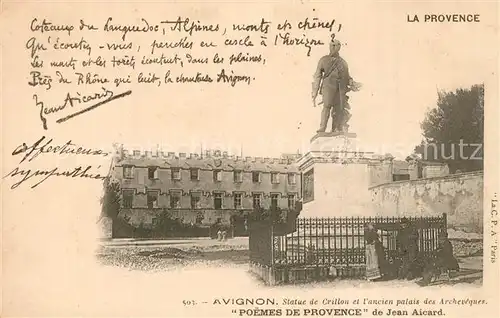 LA PROVENCE
Coteaux du Languedoc, Alpines, monts et chênes,
Qu'écoutez-vous, penchés en cercle à l'horizon ?
Les monts et les forêts écoutent, dans les plaines,
Près du Rhône qui luit, la chanteuse Avignon.
Jean Aicard
affectueux
sympathie
delcampe.net
"La C. P. A" Paris
502. - AVIGNON. Statue de Crillon et l'ancien palais des Archevêques.
"POÈMES DE PROVENCE" de Jean Aicard.